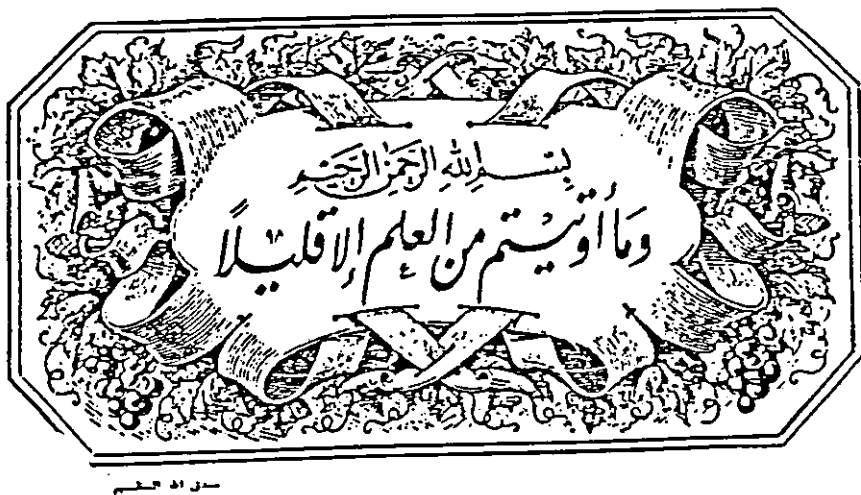 بِسْمِ اللهِ الرَّحْمٰنِ الرَّحِيمِ
وَمَا أوتيتم من العلم إلا قليلاً
صدق الله العظيم